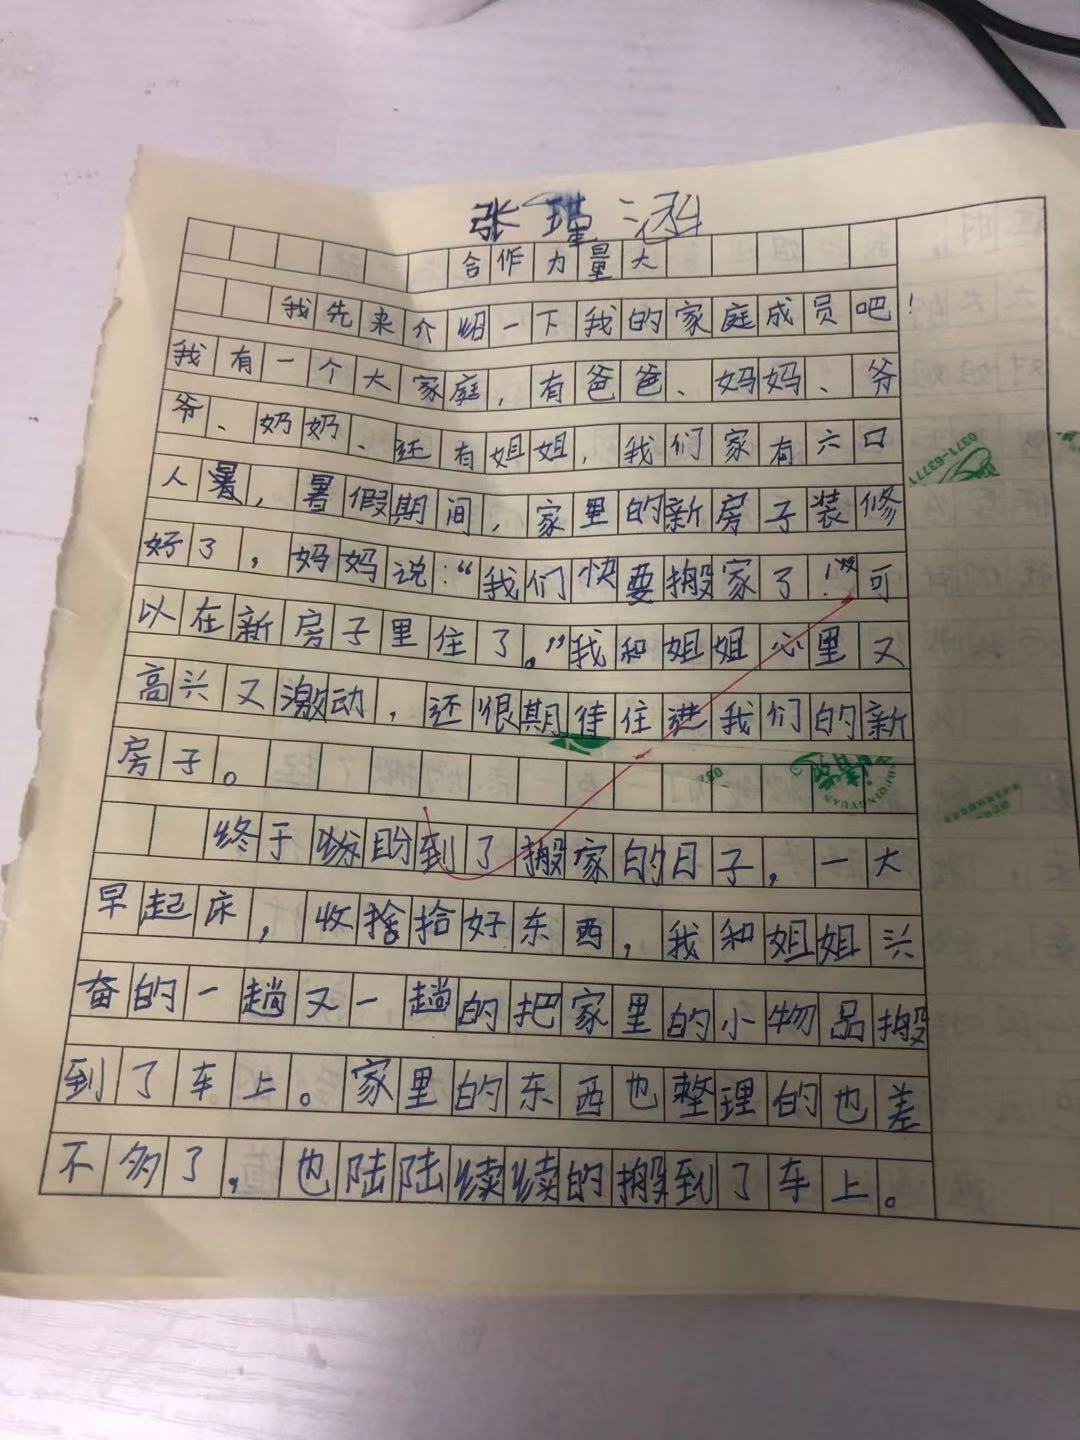 张瑾涵
合作力量大
我先来介绍一下我的家庭成员吧!
我有一个大家庭,有爸爸、妈妈、爷
爷、奶奶、还有姐姐,我们家有六口
人暑,暑假期间,家里的新房子装修
好了,妈妈说:“我们快要搬家了!”可
以在新房子里住了。”我和姐姐心里又
高兴又激动,还很期待住进我们的新
房子。
终于盼到了搬家的日子,一大
早起床,收拾好东西,我和姐姐兴
奋的一趟又一趟的把家里的小物品搬
到了车上。家里的东西也整理的也差
不多了,也陆陆续续的搬到了车上。
0371-63771